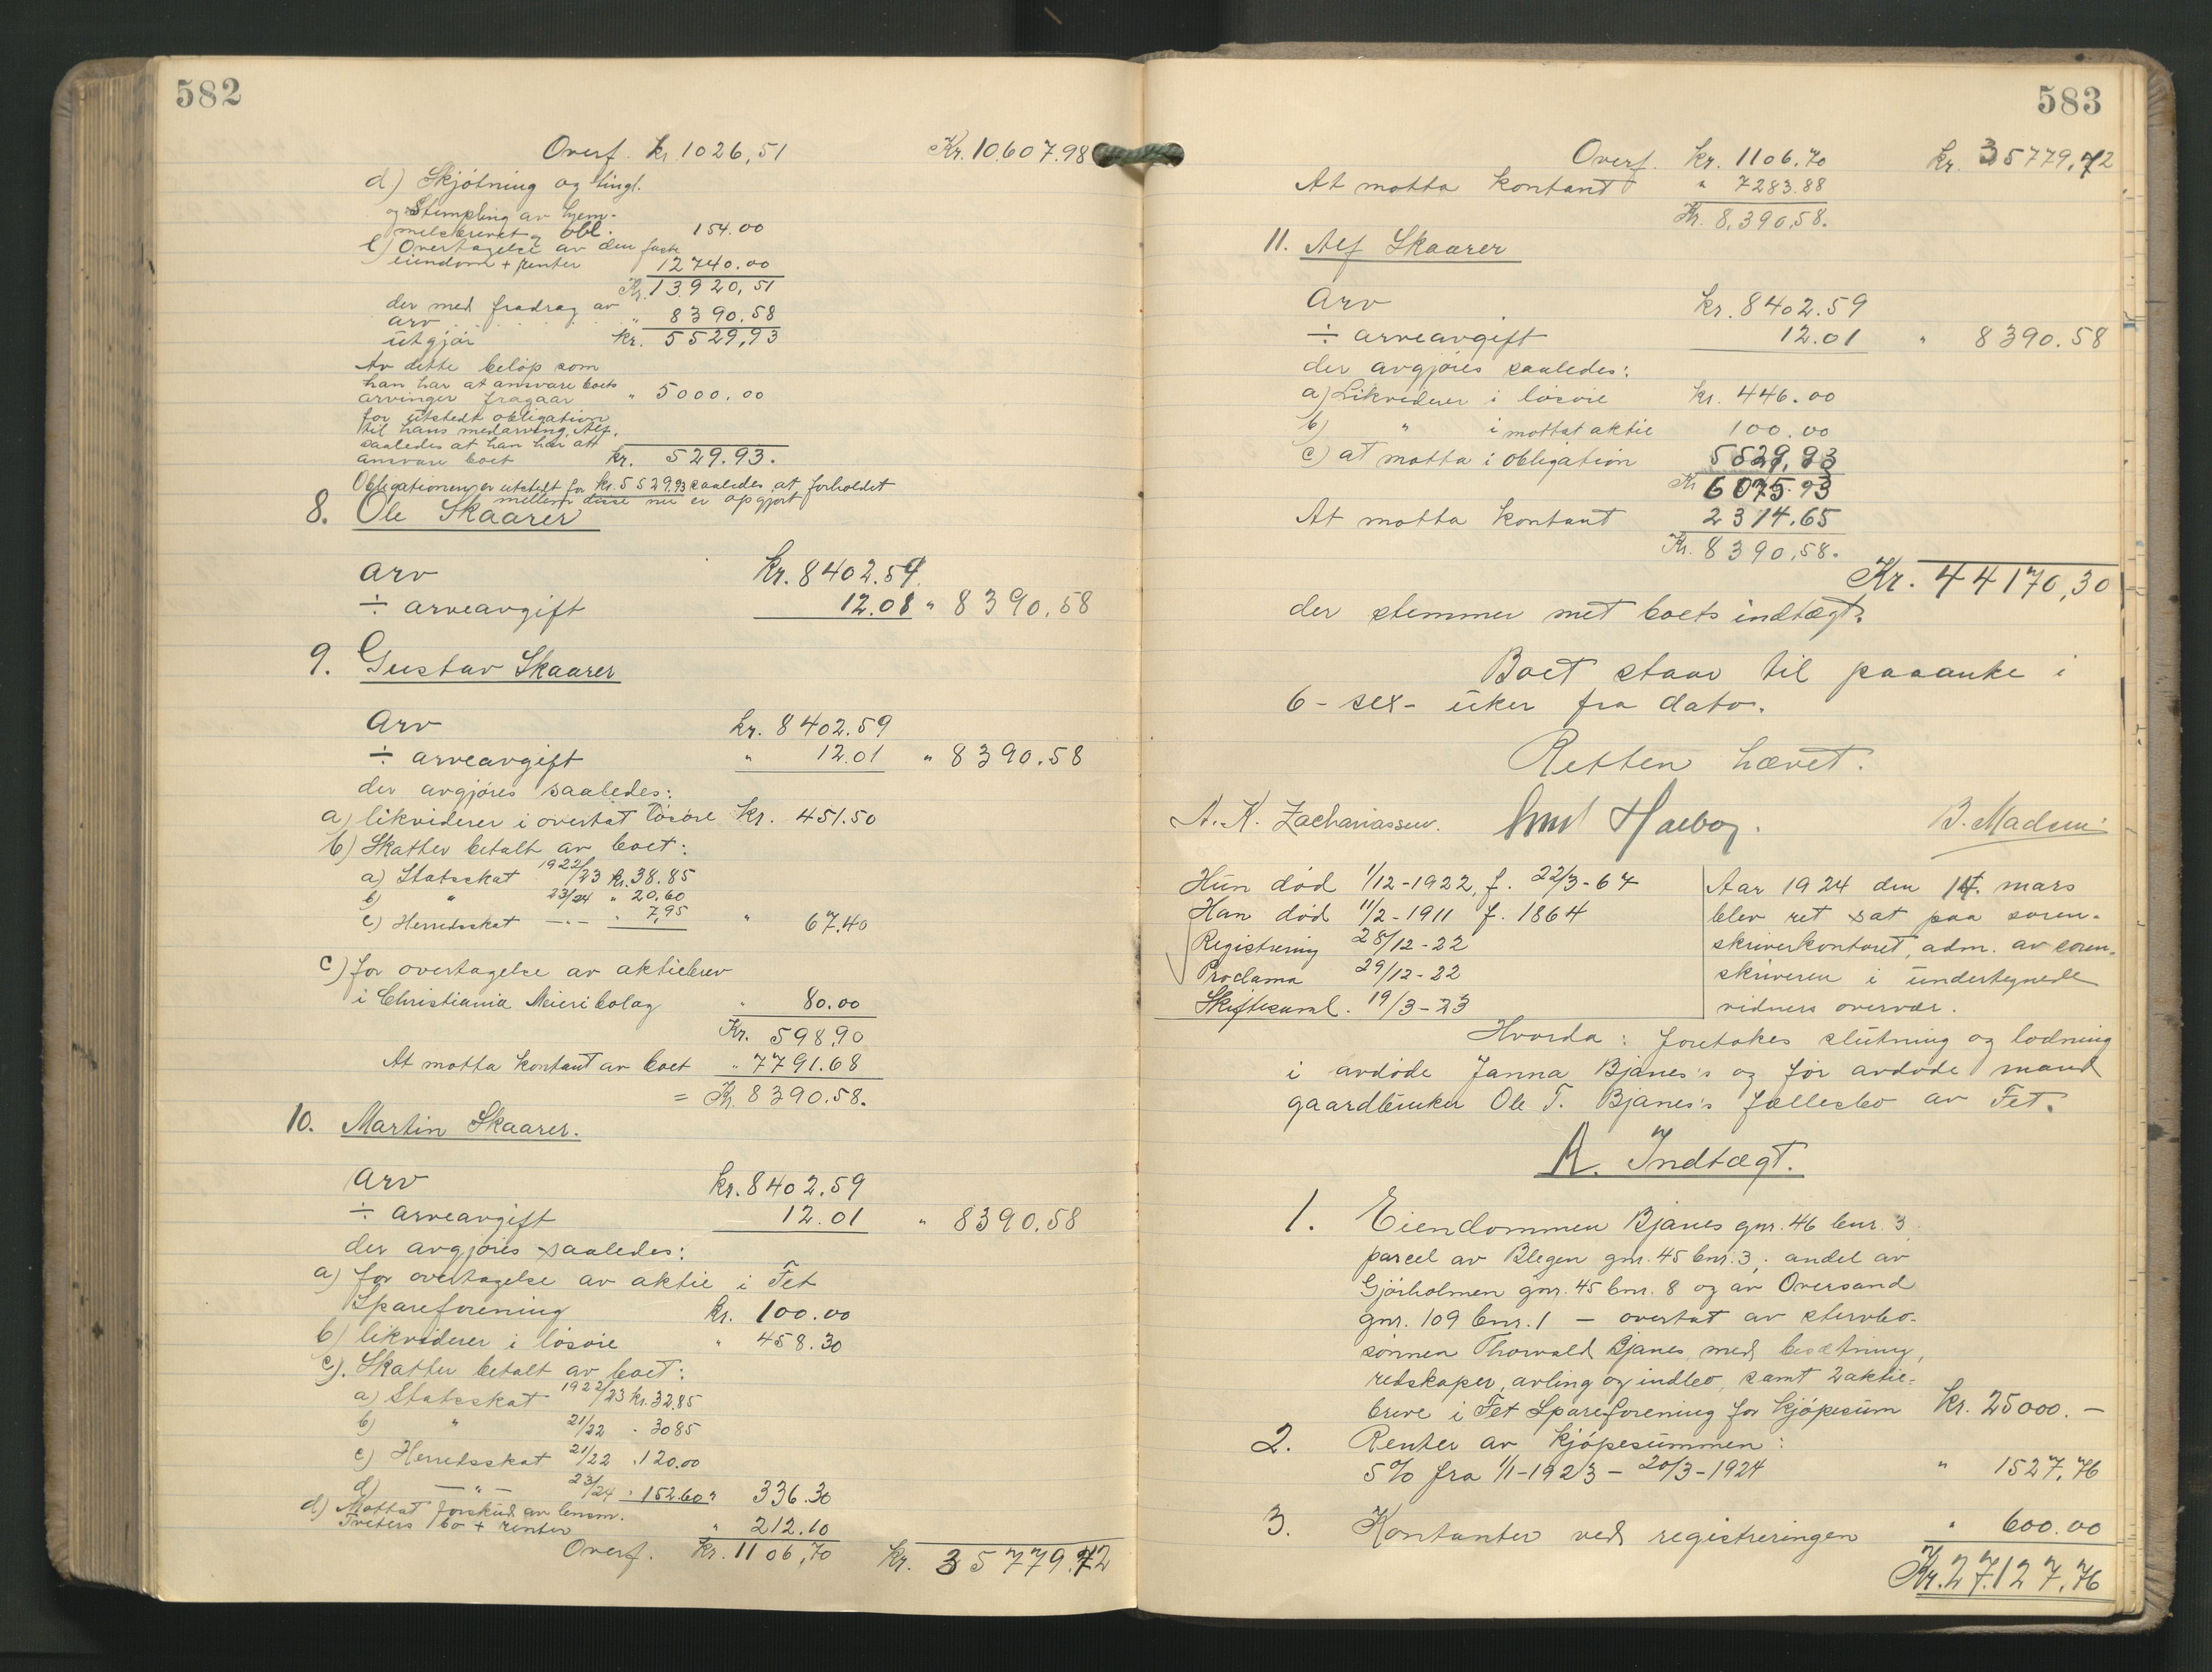 582
Overf. kr. 1026,51 Kr. 10.607.98
d) Skjötning og tingl.
og Stempling av hjem-
melsbrevet og obl. 154.00
e) Overtagelse av den faste
eiendom + renter 12740.00
Kr. 13920,51
der med fradrag av
arv . . . . . . . " 8390.58
utgjör kr. 5529,93
Av dette belöp som
han har at ansvare boets
arvinger fragaar " 5000.00
for utstedt obligation
til hans medarving Alf,
saaledes at han har att
ansvare boet kr. 529.93.
Obligationen er utstedt for kr. 5529.93 saaledes at forholdet
mellem disse nu er opgjort
8. Ole Skaarer
Arv Kr. 8402.59
÷ arveavgift 12.01 " 8390.58
9. Gustav Skaarer
Arv kr. 8402.59
÷ arveavgift " 12.01 " 8390.58
der avgjöres saaledes:
a) likviderer i overtat lösöre Kr. 451.50
b) Skatter betalt av boet:
a) Statsskat 1922/23 kr. 38.85
b) " 23/24 " 20.60
c) Herredsskat -"- " 7,95 " 67.40
c) for overtagelse av aktiebrev
i Christiania Meieribolag " 80.00
Kr. 598.90
At motta kontant av boet " 7791.68
= Kr. 8390.58.
10. Martin Skaarer.
Arv kr. 8402.59
÷ arveavgift 12.01 " 8390.58
der avgjöres saaledes:
a) for overtagelse av aktie i Fet
Spareforening kr. 100.00
b) likviderer i lösöre " 458.30
c). Skatter betalt av boet:
a) Statsskat 1922/23 kr. 32.85
b) " 21/22 " 30 85
c) Herredsskat 21/22 " 120.00
d) -"- 23/24 " 152.60 " 336.30
d) Mottat forskud av lensm.
Tveters bo + renter " 212.10
Overf. kr. 1106,70 kr. 35779.72
583
Overf. kr. 1106.70 kr. 35779,72
At motta kontant " 7283.88
Kr. 8.390,58.
11. Alf Skaarer
Arv kr. 8402.59
÷ arveavgift 12.01 " 8390.58
der avgjöres saaledes:
a) Likviderer i lösöre kr. 446.00
b) " i mottat aktie 100.00
c) at motta i obligation 5529,93
Kr 6075.93
At motta kontant 2314.65
Kr. 8390,58.
Kr. 44170,30
der stemmer met boets indtægt.
Boet staar til paaanke i
6 - sex - uker fra dato.
Retten hævet.
A. K. Zachariassen. B. Madsen
Hun död 1/12-1922, f. 22/3-64
Han död 11/2-1911 f. 1864
Registrering 28/12-22
Proclama 29/12-22
Skiftesaml. 19/3-23
Aar 1924 den 14. mars
blev ret sat paa soren-
skriverkontoret, adm. av soren-
skriveren i undertegnede
vidners overvær.
Hvorda: foretokes slutning og lodning
i avdöde Janna Bjanes's og för avdöde mand
gaardbruker Ole T. Bjanes's fællesbo av Fet.
A. Indtægt.
1. Eiendommen Bjanes gnr. 46 bnr. 3,
parcel av Blegen gnr. 45 bnr. 3, andel av
Gjörholmen gnr. 45 bnr. 8 og av Oversand
gnr. 109 bnr. 1 - overtat av stervbo-
sönnen Thorvald Bjanes, med besætning,
redskaper, avling og indbo, samt 2 aktie-
breve i Fet Spareforening for kjöpesum kr. 25000.-
2. Renter av kjöpesummen:
5% fra 1/1-1923 - 20/3-1924 " 1527,76
3. Kontanter ved registreringen " 600.00
Kr. 27.127,76